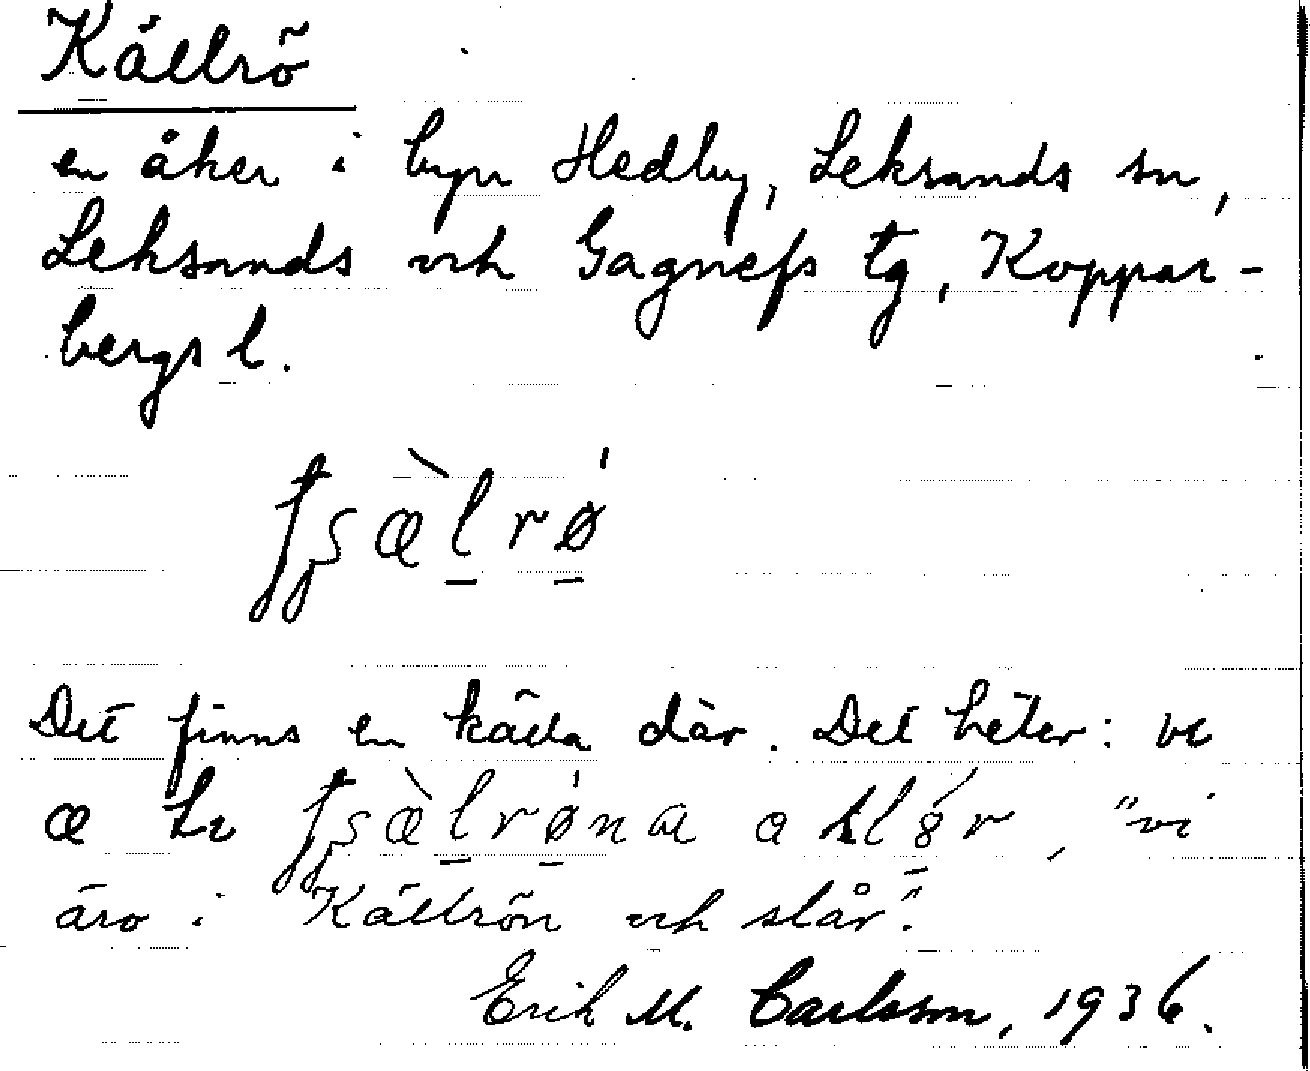 Källrö
en åker i byn Hedby, Leksands sn,
Leksands och Gagnefs tg, Koppar-
bergs l.
Det finns en källa där. Det heter: ve
æ
äro i Källrön och slår".
Erik M. Carlsson, 1936.